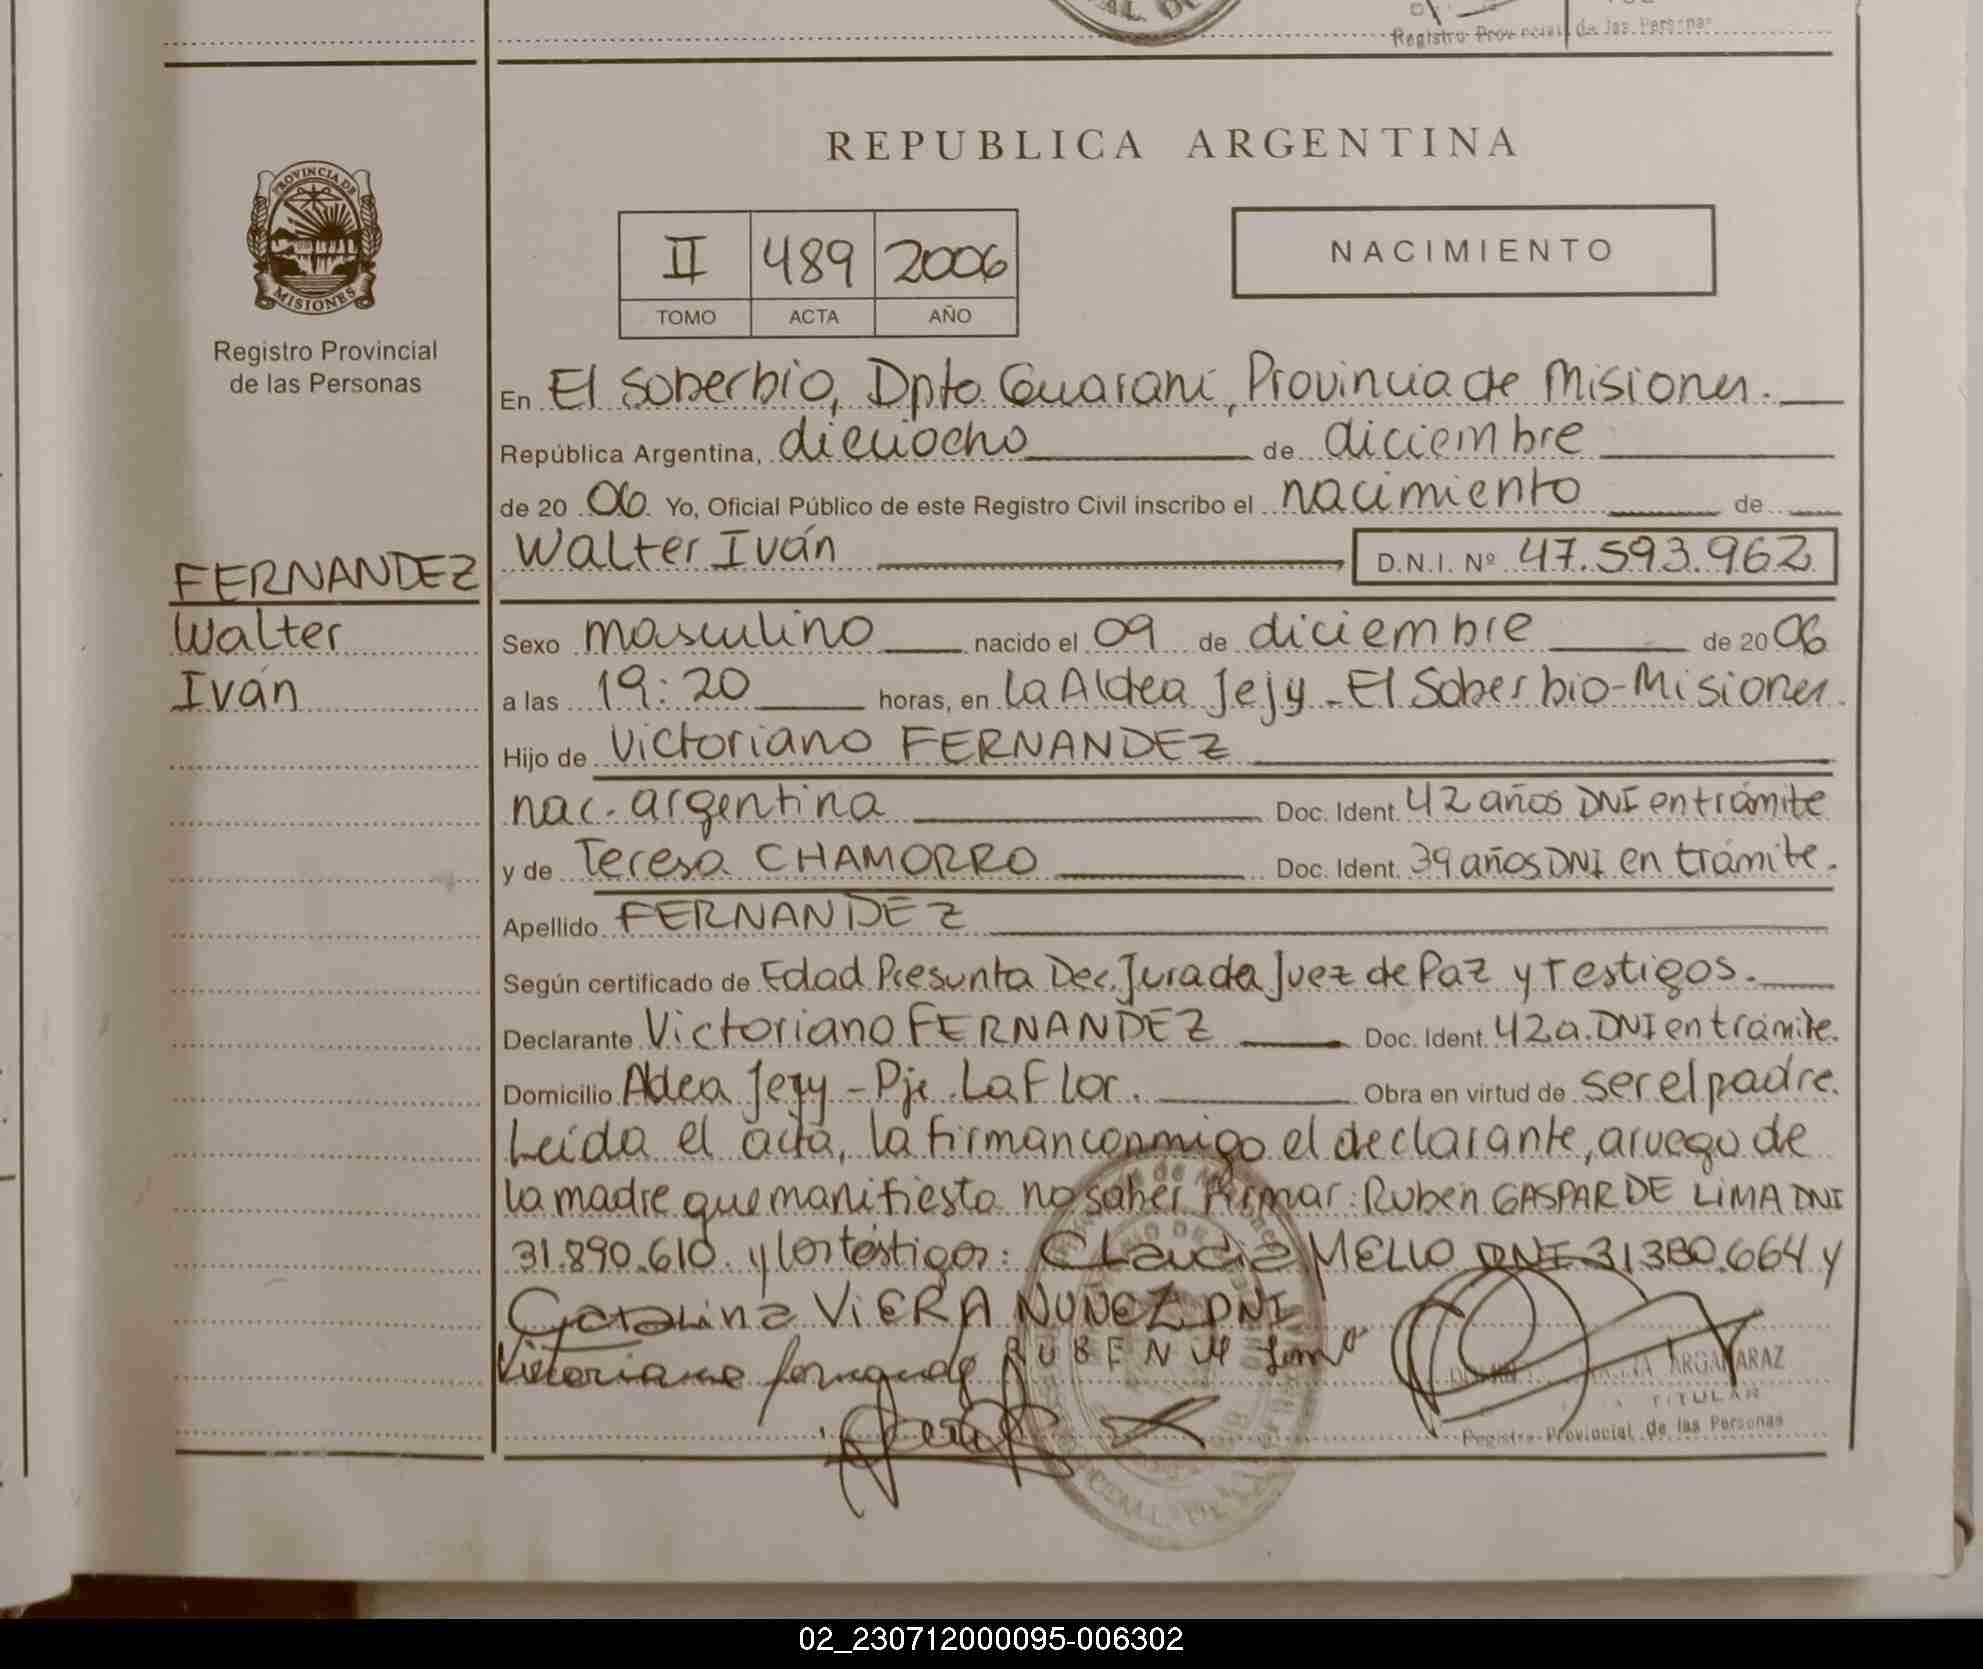 Registro Provincial de las Personas
REPUBLICA ARGENTINA
PROVINCIA DE
MISIONES
Registro Provincial
de las Personas
II 489 2006
TOMO ACTA AÑO
NACIMIENTO
En El Soberbio, Dpto. Guaraní, Provincia de Misiones.
República Argentina, dieciocho de diciembre
de 20 06 Yo, Oficial Público de este Registro Civil inscribo el nacimiento de
FERNANDEZ
Walter
Iván
Walter Iván D.N.I. Nº 47.593.962
Sexo masculino nacido el 09 de diciembre de 20 06
a las 19:20 horas, en la Aldea Jejy - El Soberbio - Misiones.
Hijo de Victoriano FERNANDEZ
nac. argentina Doc. Ident. 42 años DNI en trámite
y de Teresa CHAMORRO Doc. Ident. 39 años DNI en trámite.
Apellido FERNANDEZ
Según certificado de Edad Presunta Dec. Jurada Juez de Paz y Testigos.
Declarante Victoriano FERNANDEZ Doc. Ident. 42 a. DNI en trámite.
Domicilio Aldea Jejy - Pje. La Flor. Obra en virtud de ser el padre.
Leída el acta, la firman conmigo el declarante, a ruego de
la madre que manifiesta no saber firmar: Ruben GASPAR DE LIMA DNI
31.890.610 y los testigos: Claudia MELLO DNI 31380.664 y
Catalina VIERA NUNEZ DNI
Victoriano RUBEN
ARGAÑARAZ
TITULAR
Registro Provincial de las Personas
02_230712000095-006302